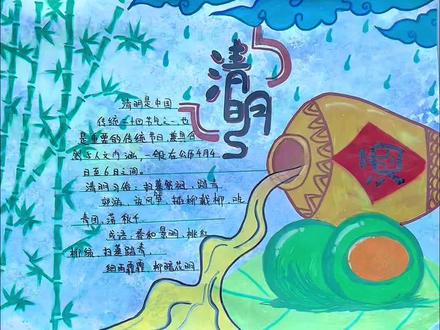 清明
清明是中国
传统二十四节气之一,也
是重要的传统节日,兼具自
然与人文内涵,一般在公历4月4
日至6日之间。
清明习俗:扫墓祭祖,踏青
郊游,放风筝,插柳戴柳,吃
青团,荡秋千
成语:春和景明,桃红
柳绿,扫墓踏青,
细雨霏霏,柳暗花明
酒